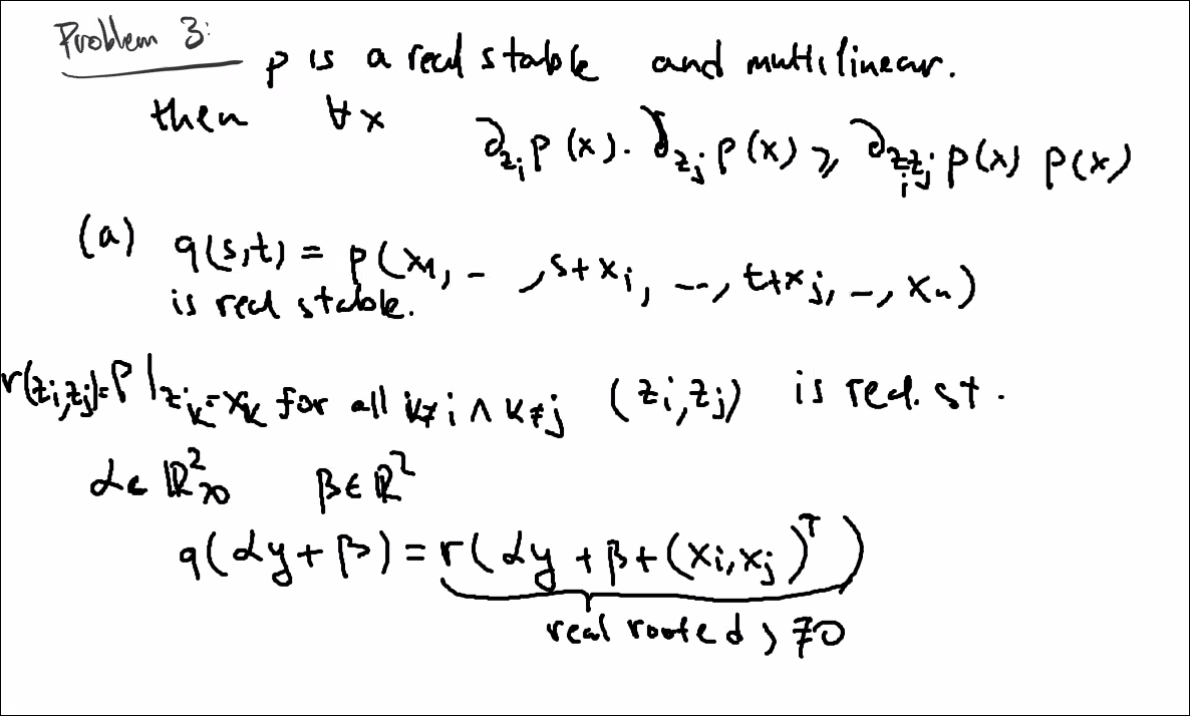 Problem 3:
p is a real stable and multilinear.
then ∀x ∂_{z_i} p(x) · ∂_{z_j} p(x) ≥ ∂_{z_i z_j} p(x) p(x)
(a) q(s,t) = p(x_1, – , s+x_i, ---, t+x_j, –, x_n)
is real stable.
r(z_i,z_j)=p|_{z_k=x_k} for all k≠i ∧ k≠j (z_i,z_j) is real. st.
α∈ℝ²_{>0} β∈ℝ²
q(αy+β) = r(αy + β+(x_i,x_j)^T)
real rooted, ≢0